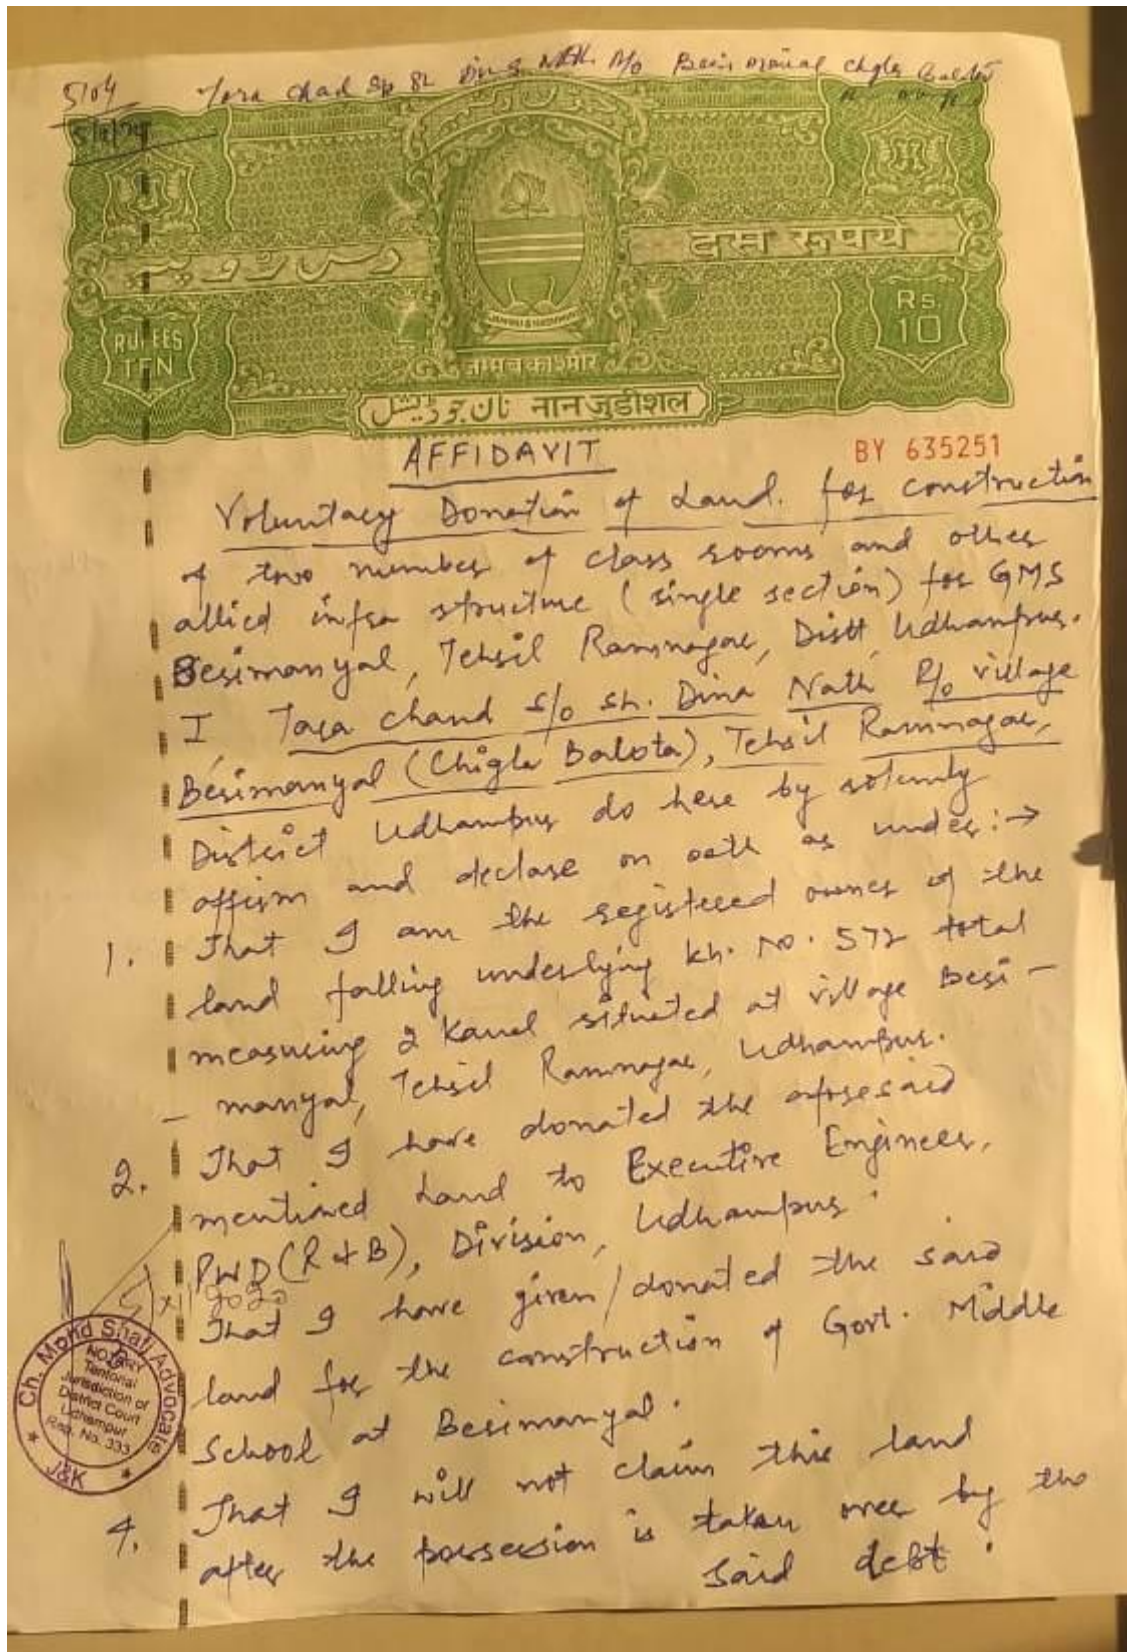 5104
Tara Chad S/o Sh Dina Nath R/o
دس روپیہ
दस रूपये
RUPEES
TEN
Rs.
10
JAMMU & KASHMIR
जम्मू व काश्मीर
نان جوڈیشل नान जुडीशल
BY 635251
AFFIDAVIT
Voluntary Donation of Land. for construction
of two number of class rooms and other
allied infra structure (single section) for GMS
Besimanyal, Tehsil Ramnagar, Distt, Udhampur.
I, Tara Chand s/o sh. Dina Nath R/o village
Besimanyal (Chigla Balota), Tehsil Ramnagar,
District Udhampur do here by solemnly
affirm and declare on oath as under:→
1. That I am the registered owner of the
land falling underlying kh. No. 572 total
measuring 2 Kanal situated at village Besi-
- manyal, Tehsil Ramnagar, Udhampur.
2. That I have donated the aforesaid
mentioned Land to Executive Engineer,
PWD (R&B), Division, Udhampur.
That I have given/donated the said
land for the construction of Govt. Middle
School at Besimanyal.
4. That I will not claim this land
after the possession is taken over by the
said debt.
Ch. Mohd Shafi Advocate
NOTARY
Territorial
Jurisdiction of
District Court
Udhampur
Reg. No. 333
J&K